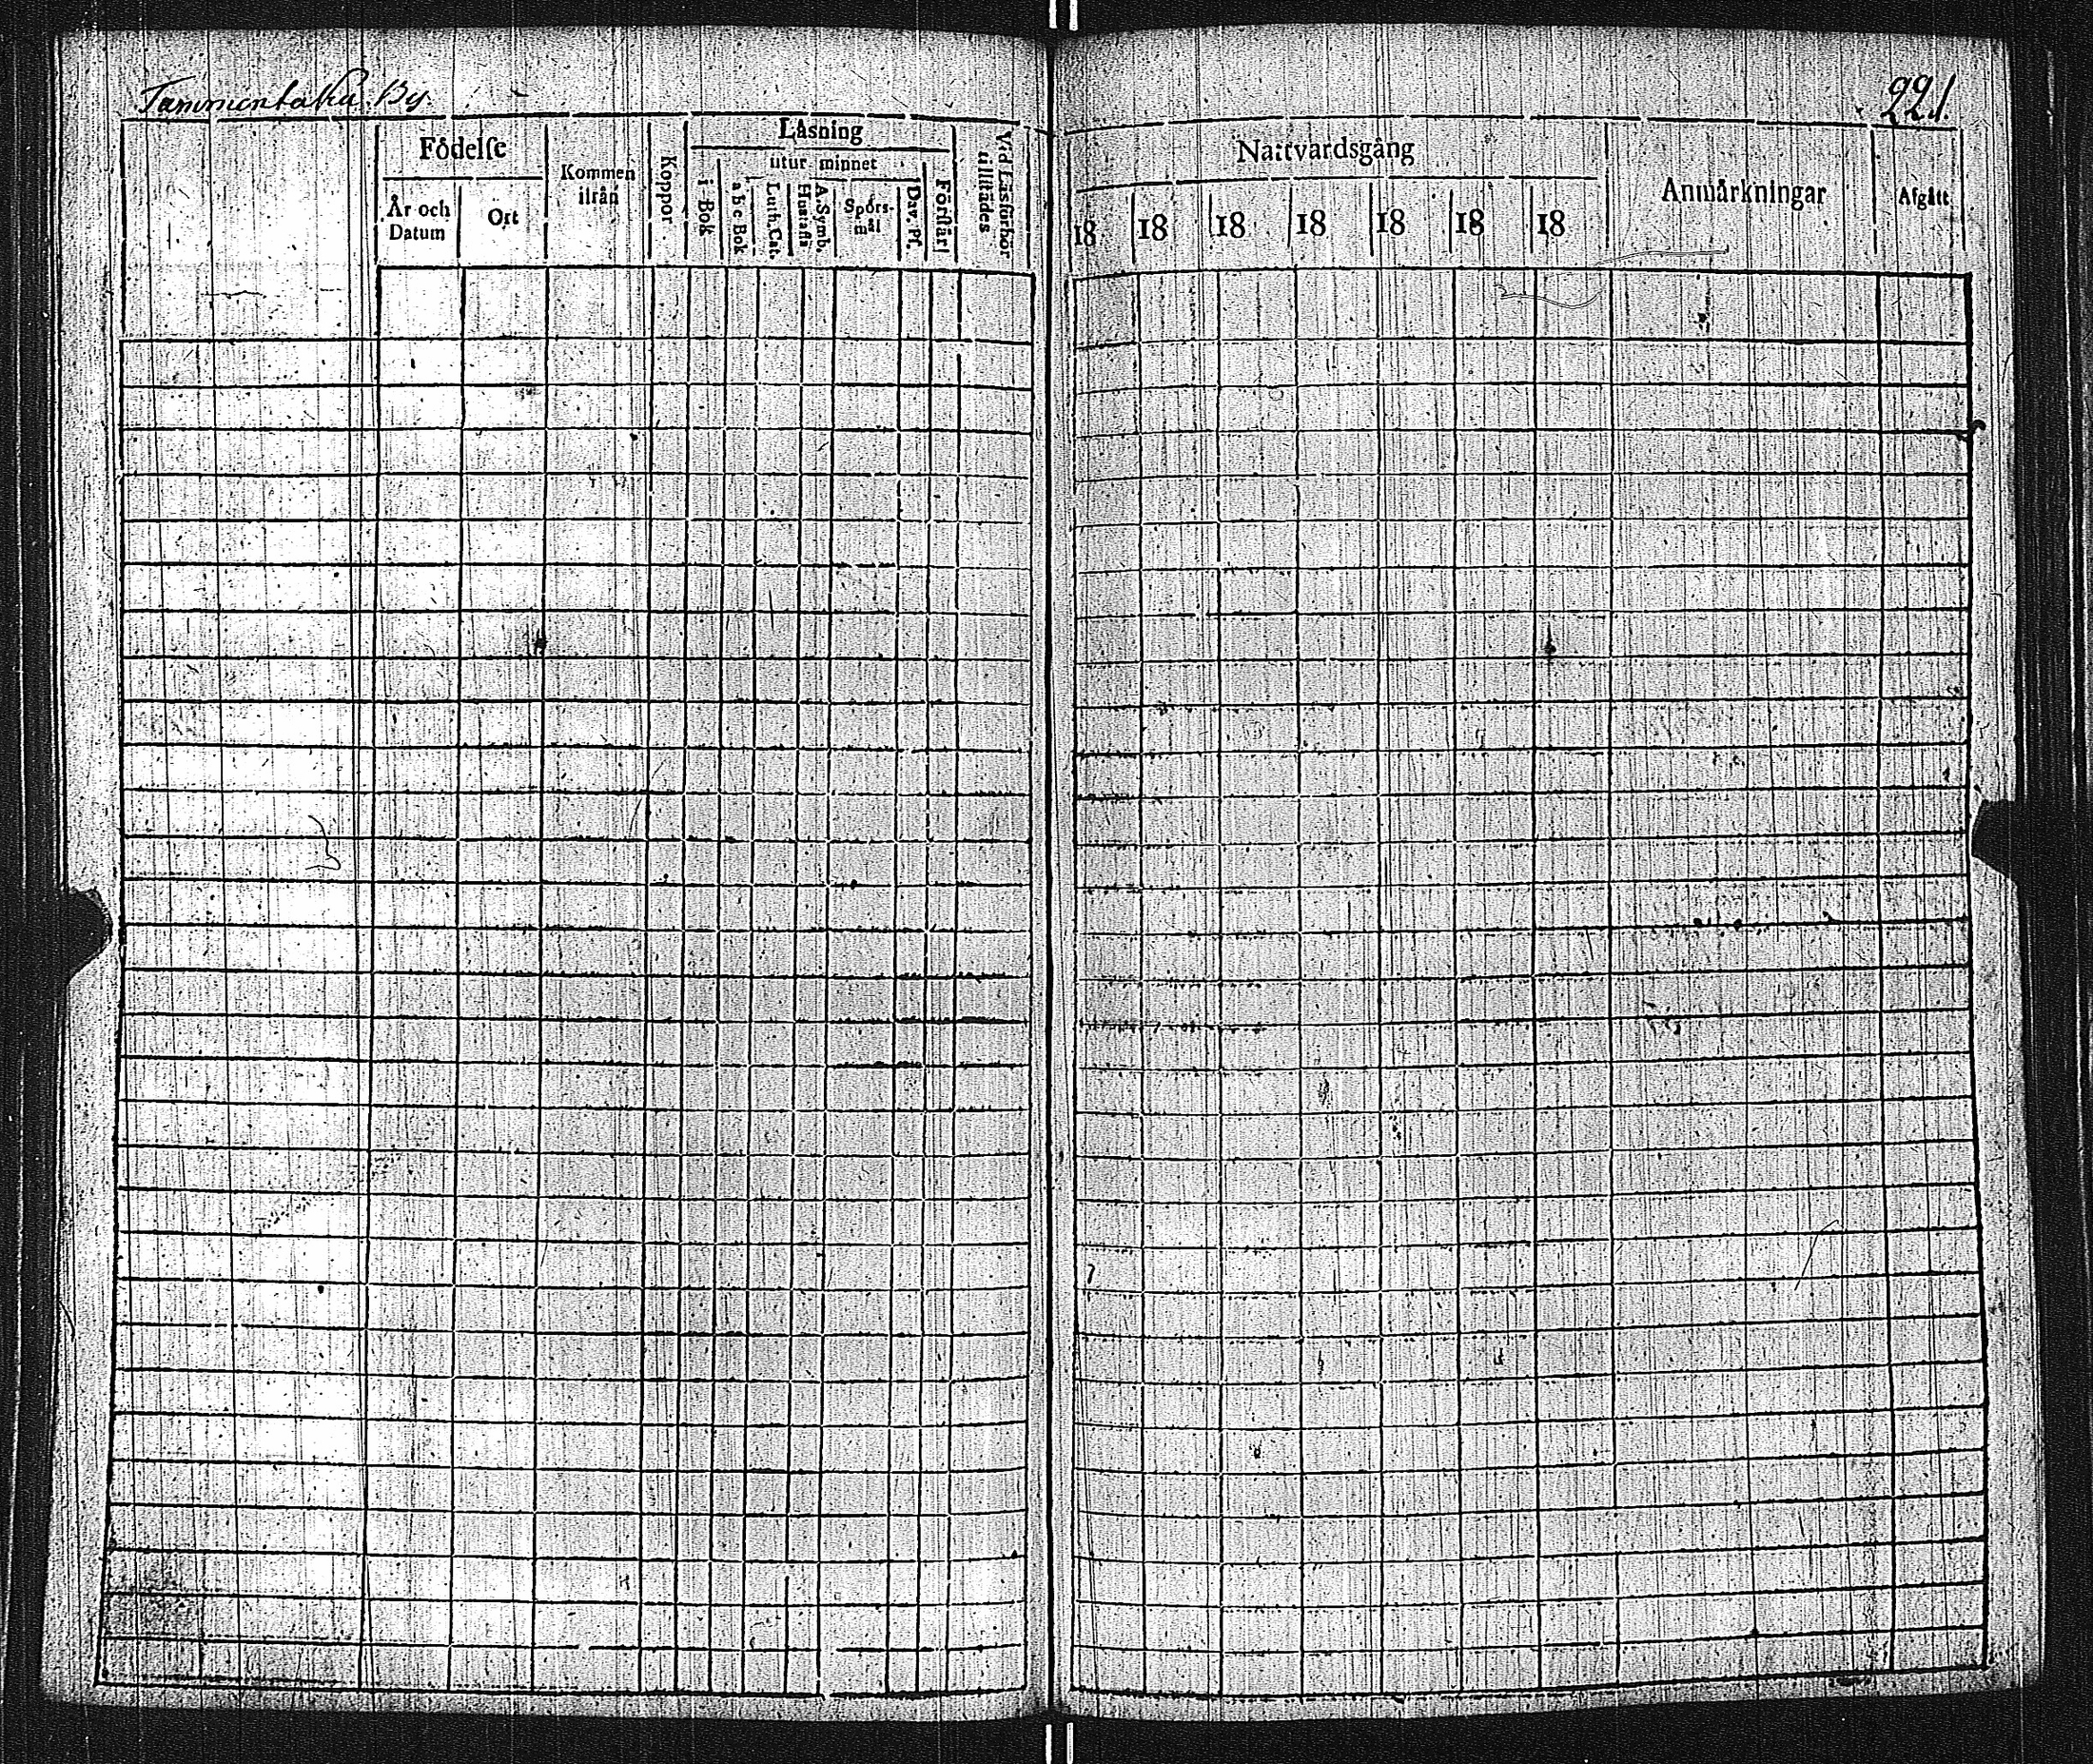 Tammentaka By.
221.
Födelse
År och Datum
Ort
Kommen ifrån
Koppor
Läsning
i Bok
utur minnet
abc Bok
Luth. Cat.
Hustafla
A. Symb.
Spörsmål
Dav. Ps.
Förstår
Vid Läsförhör tillstädes
Nattvardsgång
18 18 18 18 18 18 18
Anmärkningar
Afgått